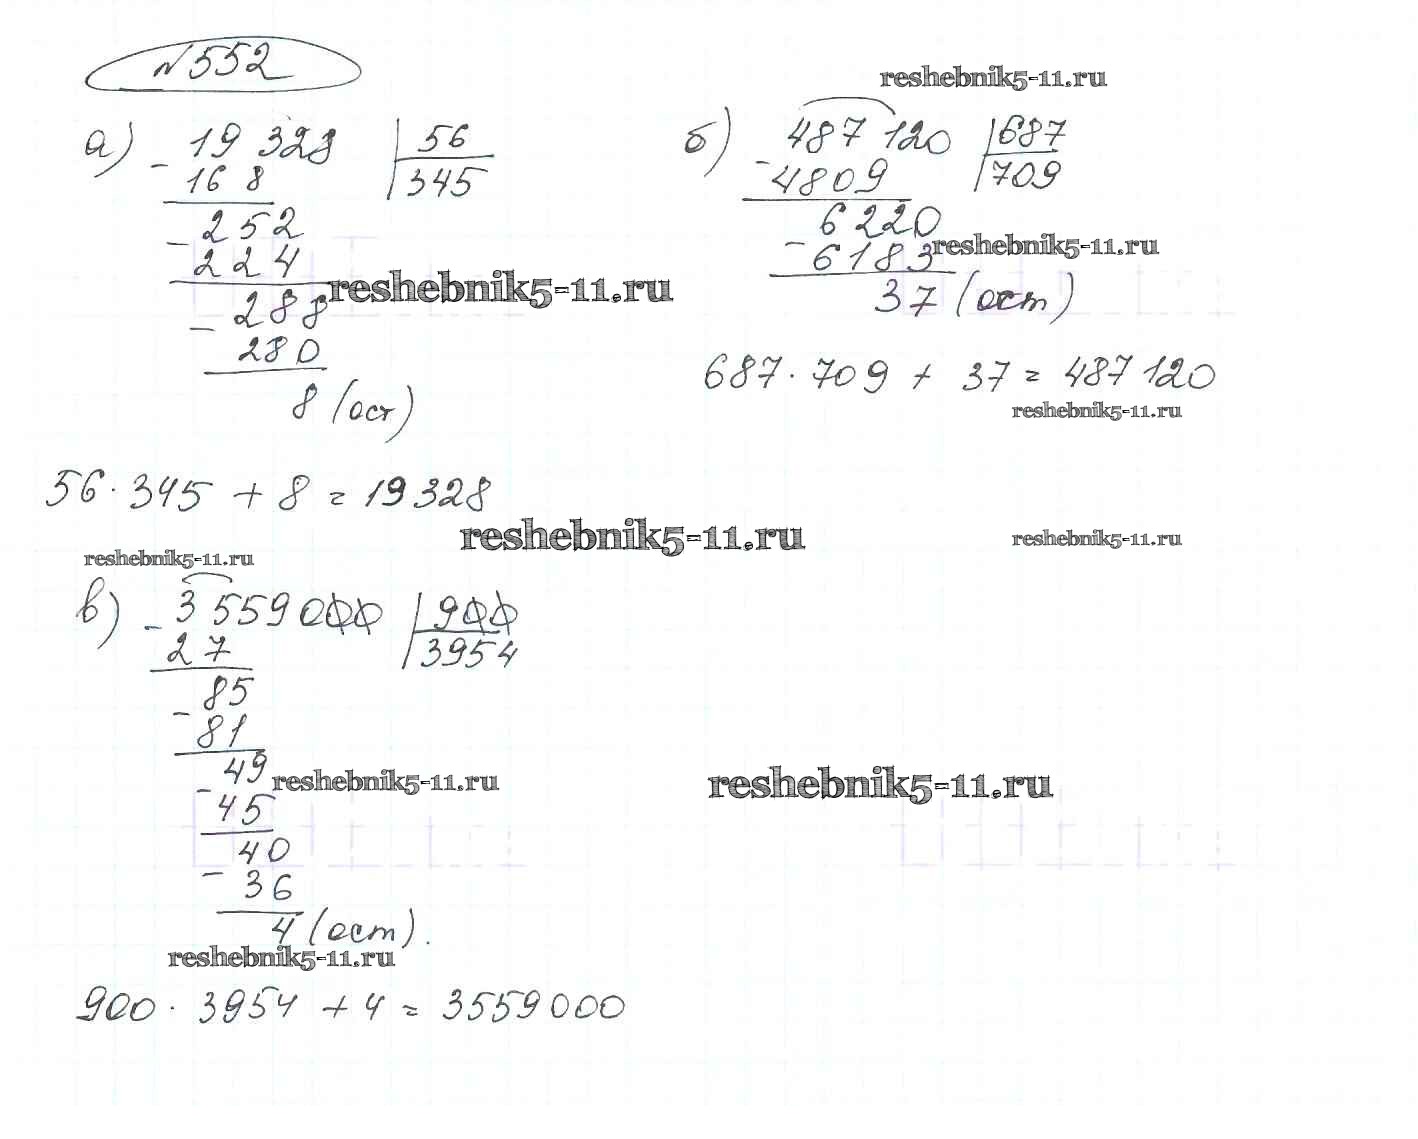 №552
reshebnik5-11.ru
а) - 19 328 | 56
16 8 | 345
- 252
224
reshebnik5-11.ru
- 288
280
8 (ост)
56 · 345 + 8 = 19328
б) - 487 120 | 687
4809 | 709
6220
- 6183
reshebnik5-11.ru
37 (ост)
687 · 709 + 37 = 487 120
reshebnik5-11.ru
reshebnik5-11.ru
reshebnik5-11.ru
reshebnik5-11.ru
в) - 3 559 000 | 900
27 | 3954
- 85
81
- 49
reshebnik5-11.ru
45
40
- 36
4 (ост).
reshebnik5-11.ru
reshebnik5-11.ru
900 · 3954 + 4 = 3559 000